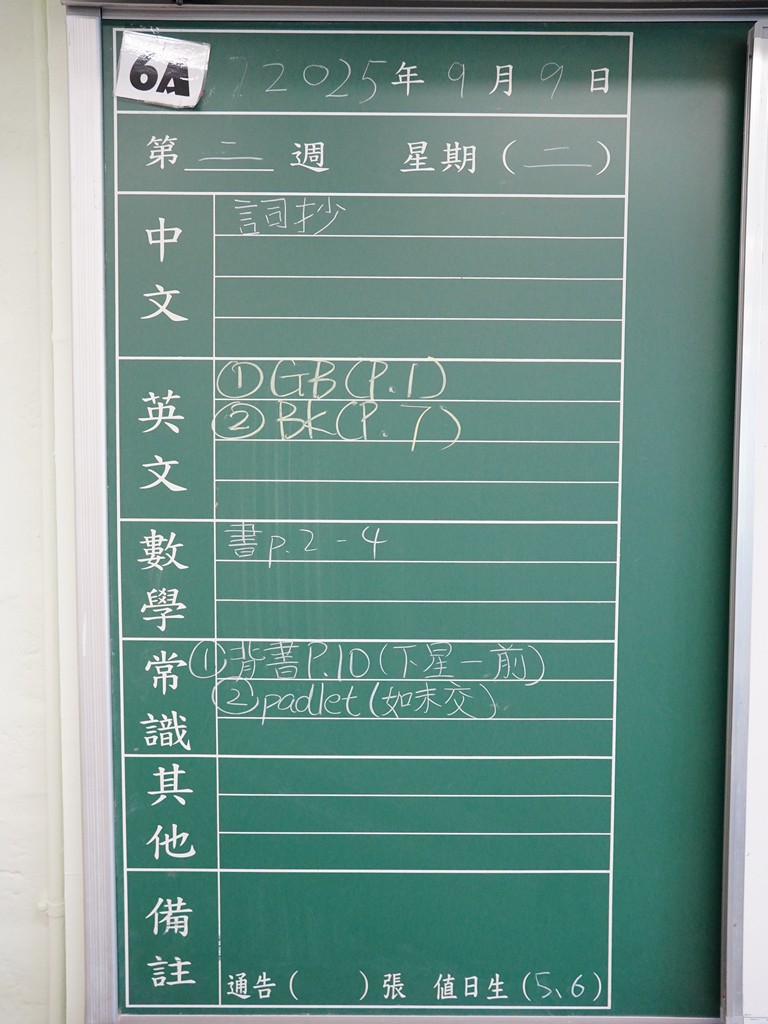 6A
2025年9月9日
第二週 星期(二)
中文
詞抄
英文
①GB(P.1)
②BK(P.7)
數學
書p.2-4
常識
①背書P.10(下星一前)
②padlet(如未交)
其他
備註
通告( )張 值日生(5、6)